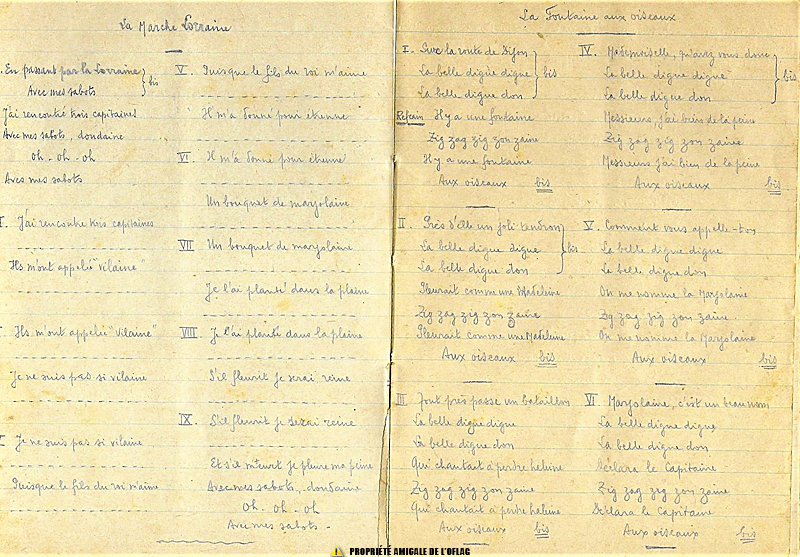 La Marche Lorraine
. En passant par la Lorraine } bis
Avec mes sabots
J'ai rencontré trois capitaines
Avec mes sabots, dondaine
Oh - oh - oh
Avec mes sabots
I. J'ai rencontré trois capitaines
Ils m'ont appelé "vilaine"
I. Ils m'ont appelée "Vilaine"
Je ne suis pas si vilaine
I Je ne suis pas si vilaine
Puisque le fils du roi m'aime
V. Puisque le fils du roi m'aime
Il m'a donné pour étrenne
VI Il m'a donné pour étrenne
Un bouquet de marjolaine
VII Un bouquet de marjolaine
Je l'ai planté dans la plaine
VIII. Je l'ai planté dans la plaine
S'il fleurit je serai reine
IX. S'il fleurit je serai reine
Et s'il meurt je pleure ma peine
Avec mes sabots, dondaine
Oh - oh - oh
Avec mes sabots -
La Fontaine aux oiseaux
I. Sur la route de Dijon
La belle digue digue } bis
La belle digue don
Refrain Il y a une fontaine
Zig zag zig zon zaine
Il y a une fontaine
Aux oiseaux bis
II Près d'elle un joli tendron
La belle digue digue } bis
La belle digue don
Pleurait comme une Madeleine
Zig zag zig zon zaine
Pleurait comme une Madeleine
Aux oiseaux bis
III Tout près passe un bataillon
La belle digue digue
La belle digue don
Qui chantait à perdre haleine
Zig zag zig zon zaine
Qui chantait à perdre haleine
Aux oiseaux bis
IV. Mademoiselle, qu'avez vous donc
La belle digue digue } bis
La belle digue don
Messieurs, j'ai bien de la peine
Zig zag zig zon zaine
Messieurs j'ai bien de la peine
Aux oiseaux bis
V. Comment vous appelle-t-on
La belle digue digue
La belle digue don
On me nomme la Marjolaine
Zig zag zig zon zaine.
On me nomme la Marjolaine
Aux oiseaux bis
VI Marjolaine, c'est un beau nom
La belle digue digue
La belle digue don
Déclara le Capitaine
Zig zag zig zon zaine
Déclara le Capitaine
Aux oiseaux bis
PROPRIÉTÉ AMIGALE DE L'OFLAG